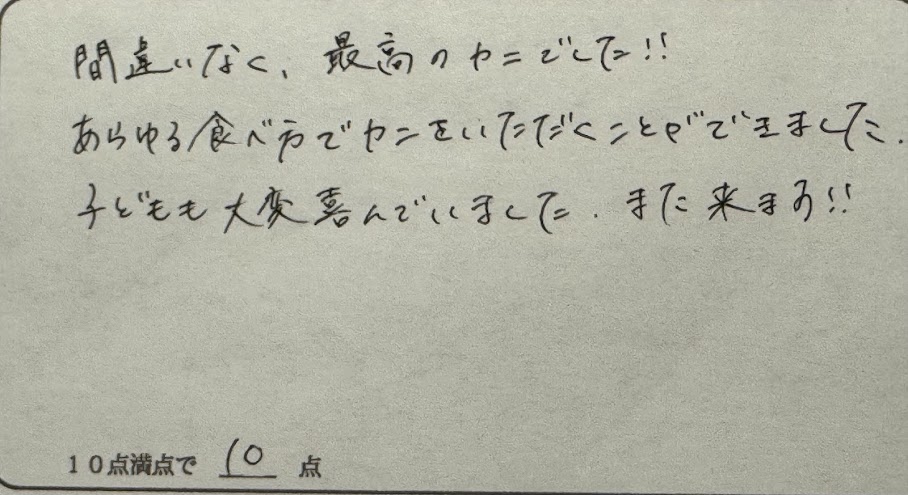 間違いなく、最高のカニでした!!
あらゆる食べ方でカニをいただくことができました.
子どもも大変喜んでいました. また来ます!!
10点満点で 10 点